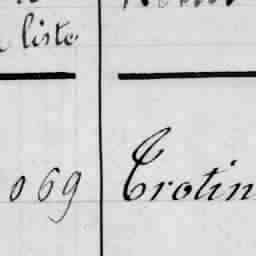 liste
069 Crotin